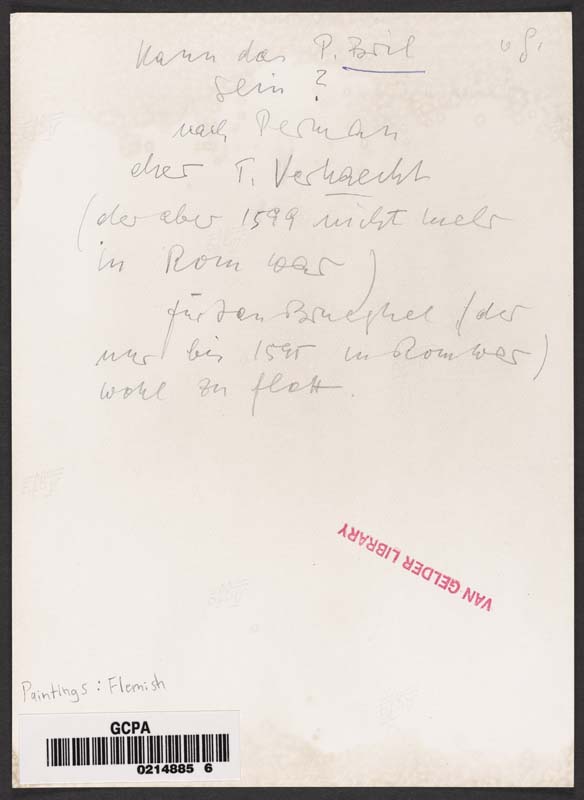 Kann das P. Bril
sein?
nach Perman
eher T. Verhaecht
(der aber 1599 nicht mehr
in Rom war)
für Jan Brueghel (der
nur bis 1595 in Rom war)
wohl zu flott.
VAN GELDER LIBRARY
Paintings: Flemish
GCPA
0214885 6